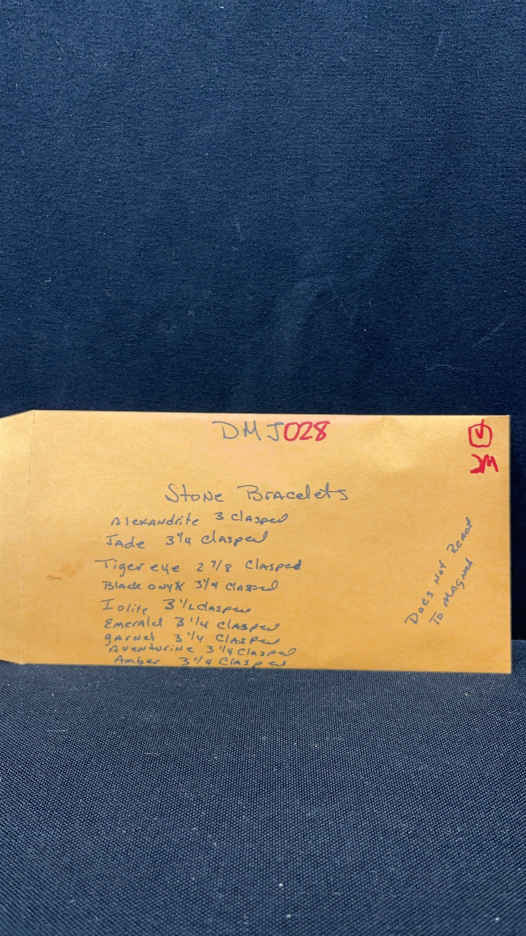 DMJ028
V
JM
Stone Bracelets
Alexandrite 3 Clasped
Jade 3 1/4 Clasped
Tiger eye 2 7/8 Clasped
Black onyx 3 1/4 Clasped
Iolite 3 1/2 Clasped
Emerald 3 1/4 Clasped
garnet 3 1/4 Clasped
Aventurine 3 1/4 Clasped
Amber 3 1/4 Clasped
Does Not React
To Magnet